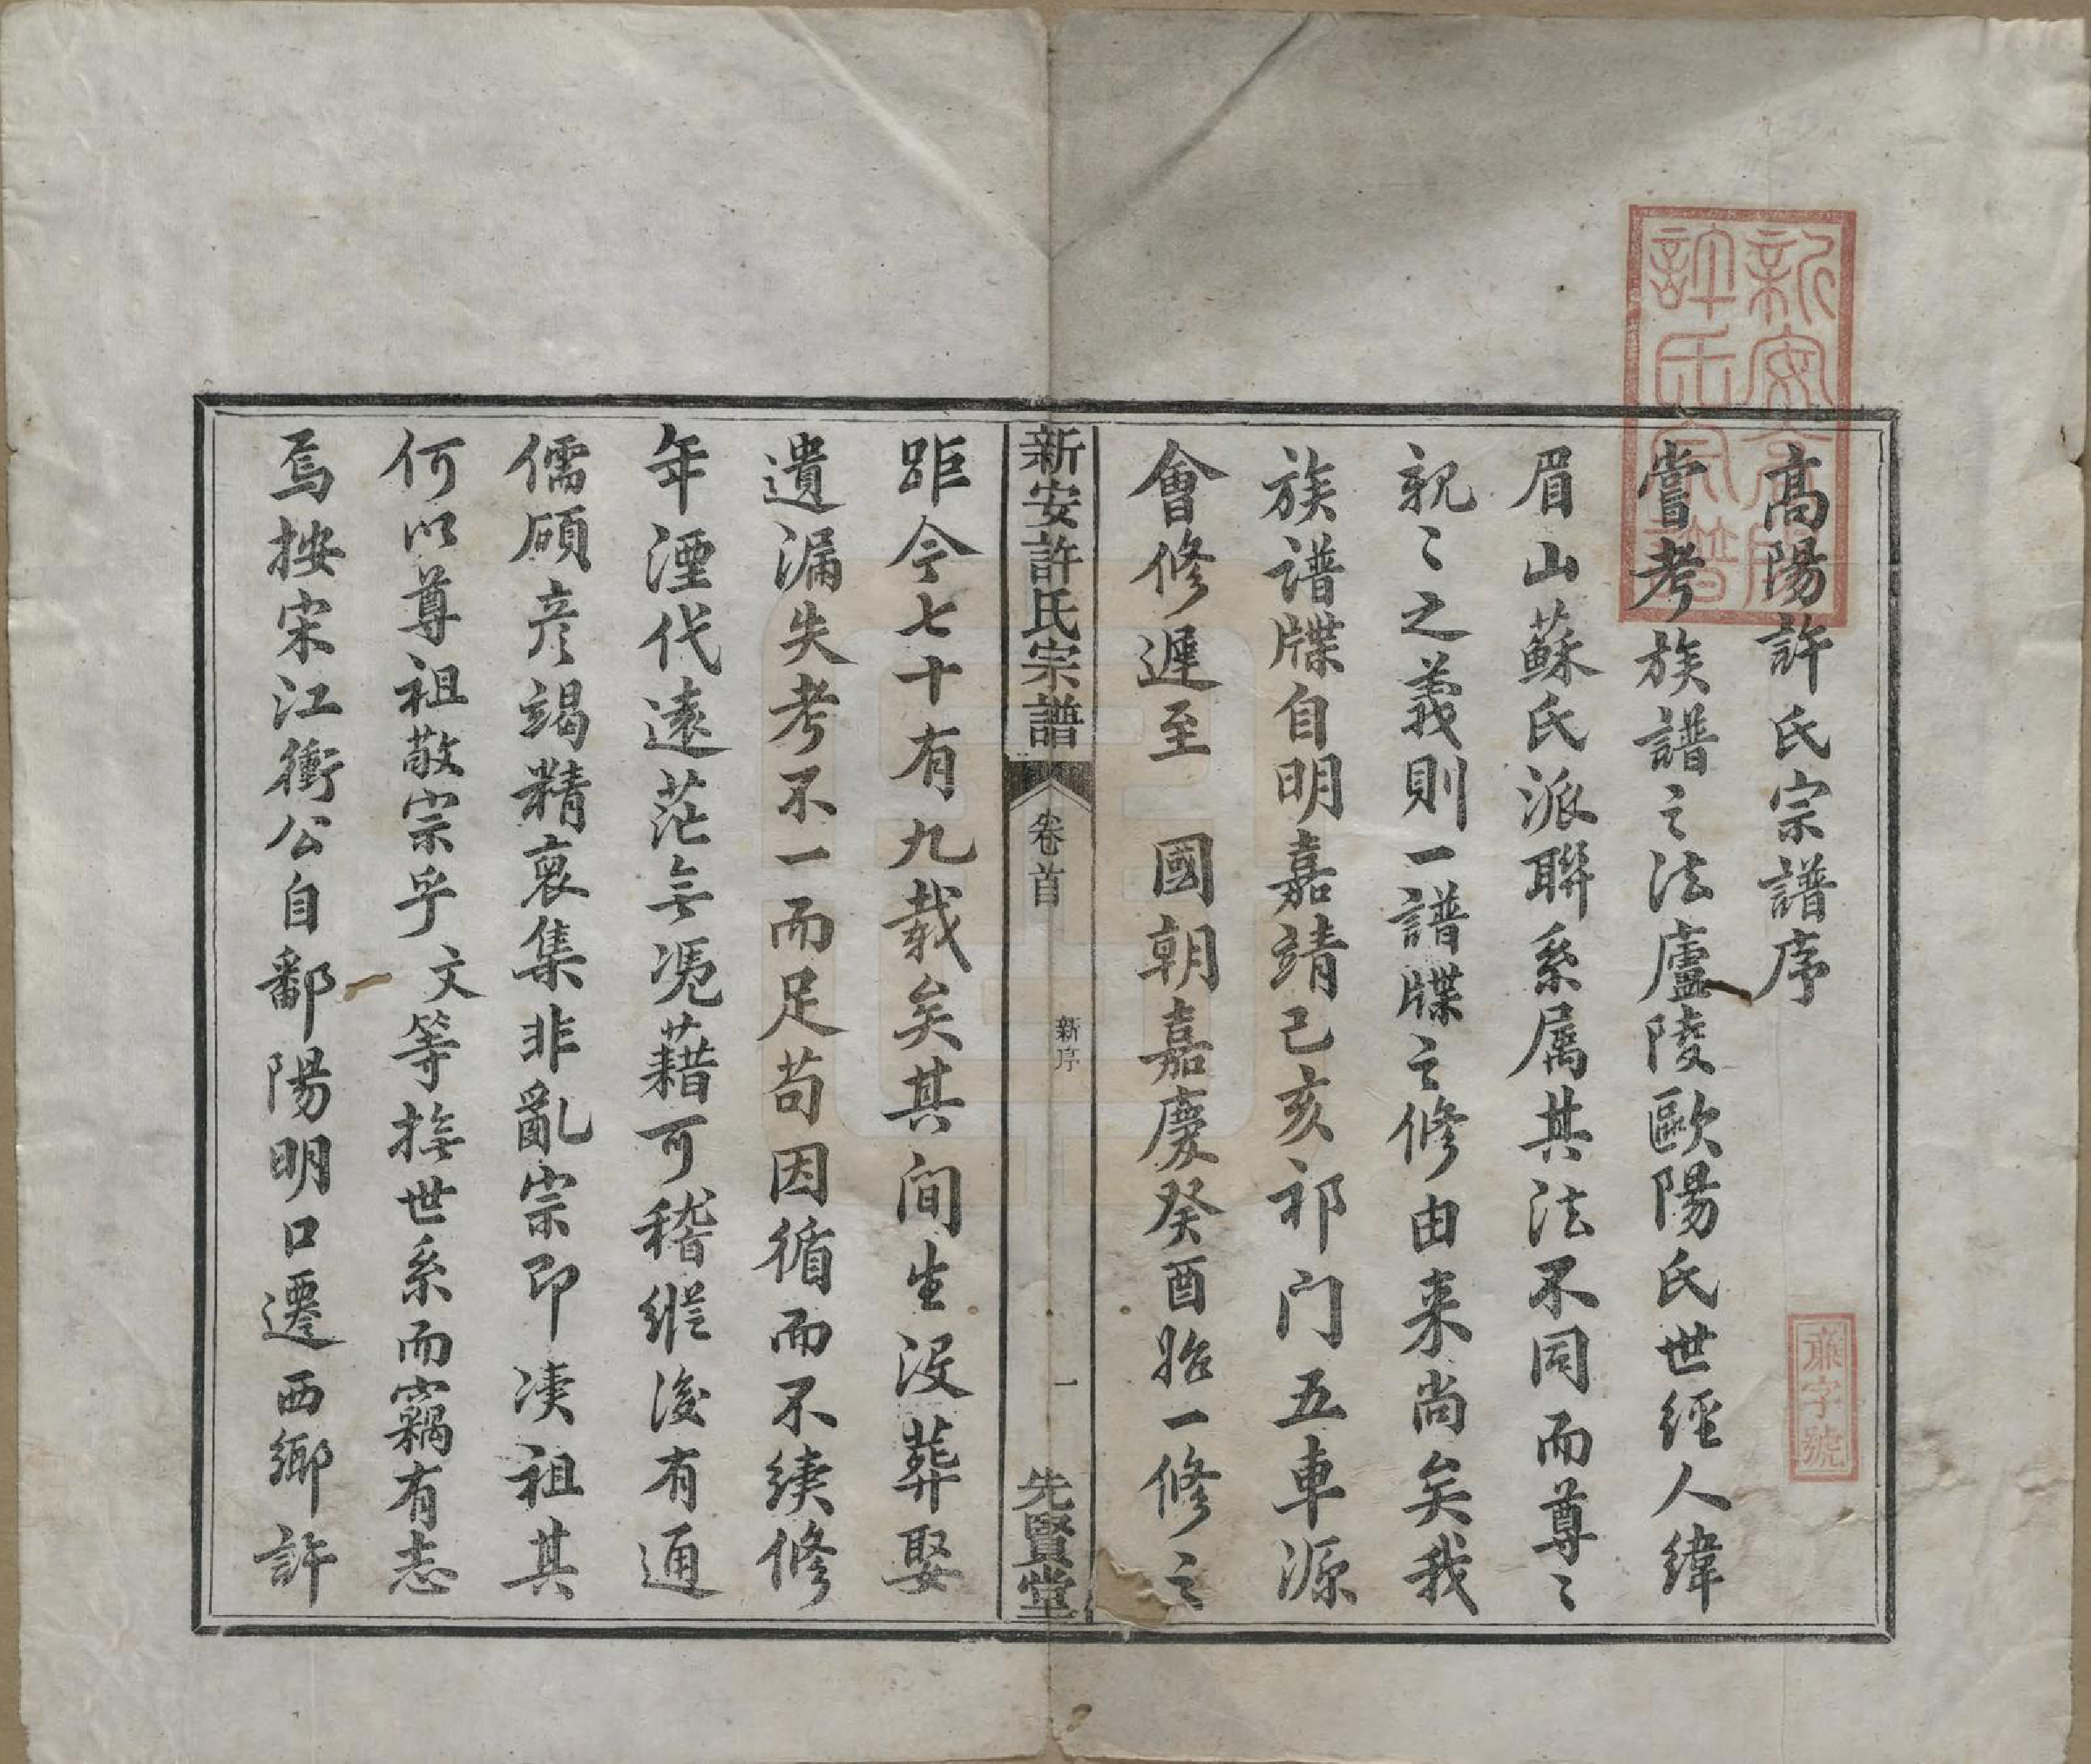 高陽許氏宗譜序
嘗考族譜之法廬陵歐陽氏世經人緯
眉山蘇氏派聯系属其法不同而尊〻
親〻之義則一譜牒之修由来尚矣我
族譜牒自明嘉靖己亥祁门五車源
會修遲至 國朝嘉慶癸酉始一修之
新安許氏宗譜
卷首
新序
一
先賢堂
距今七十有九载矣其间生没葬娶
遺漏失考不一而足苟因循而不续修
年湮代遠茫無凴藉可稽縱後有通
儒碩彦竭精裒集非亂宗即凟祖其
何以尊祖敬宗乎 文等撫世系而竊有志
焉按宋江衝公自鄱陽明口遷西鄉許
新安
許氏宗譜
字號